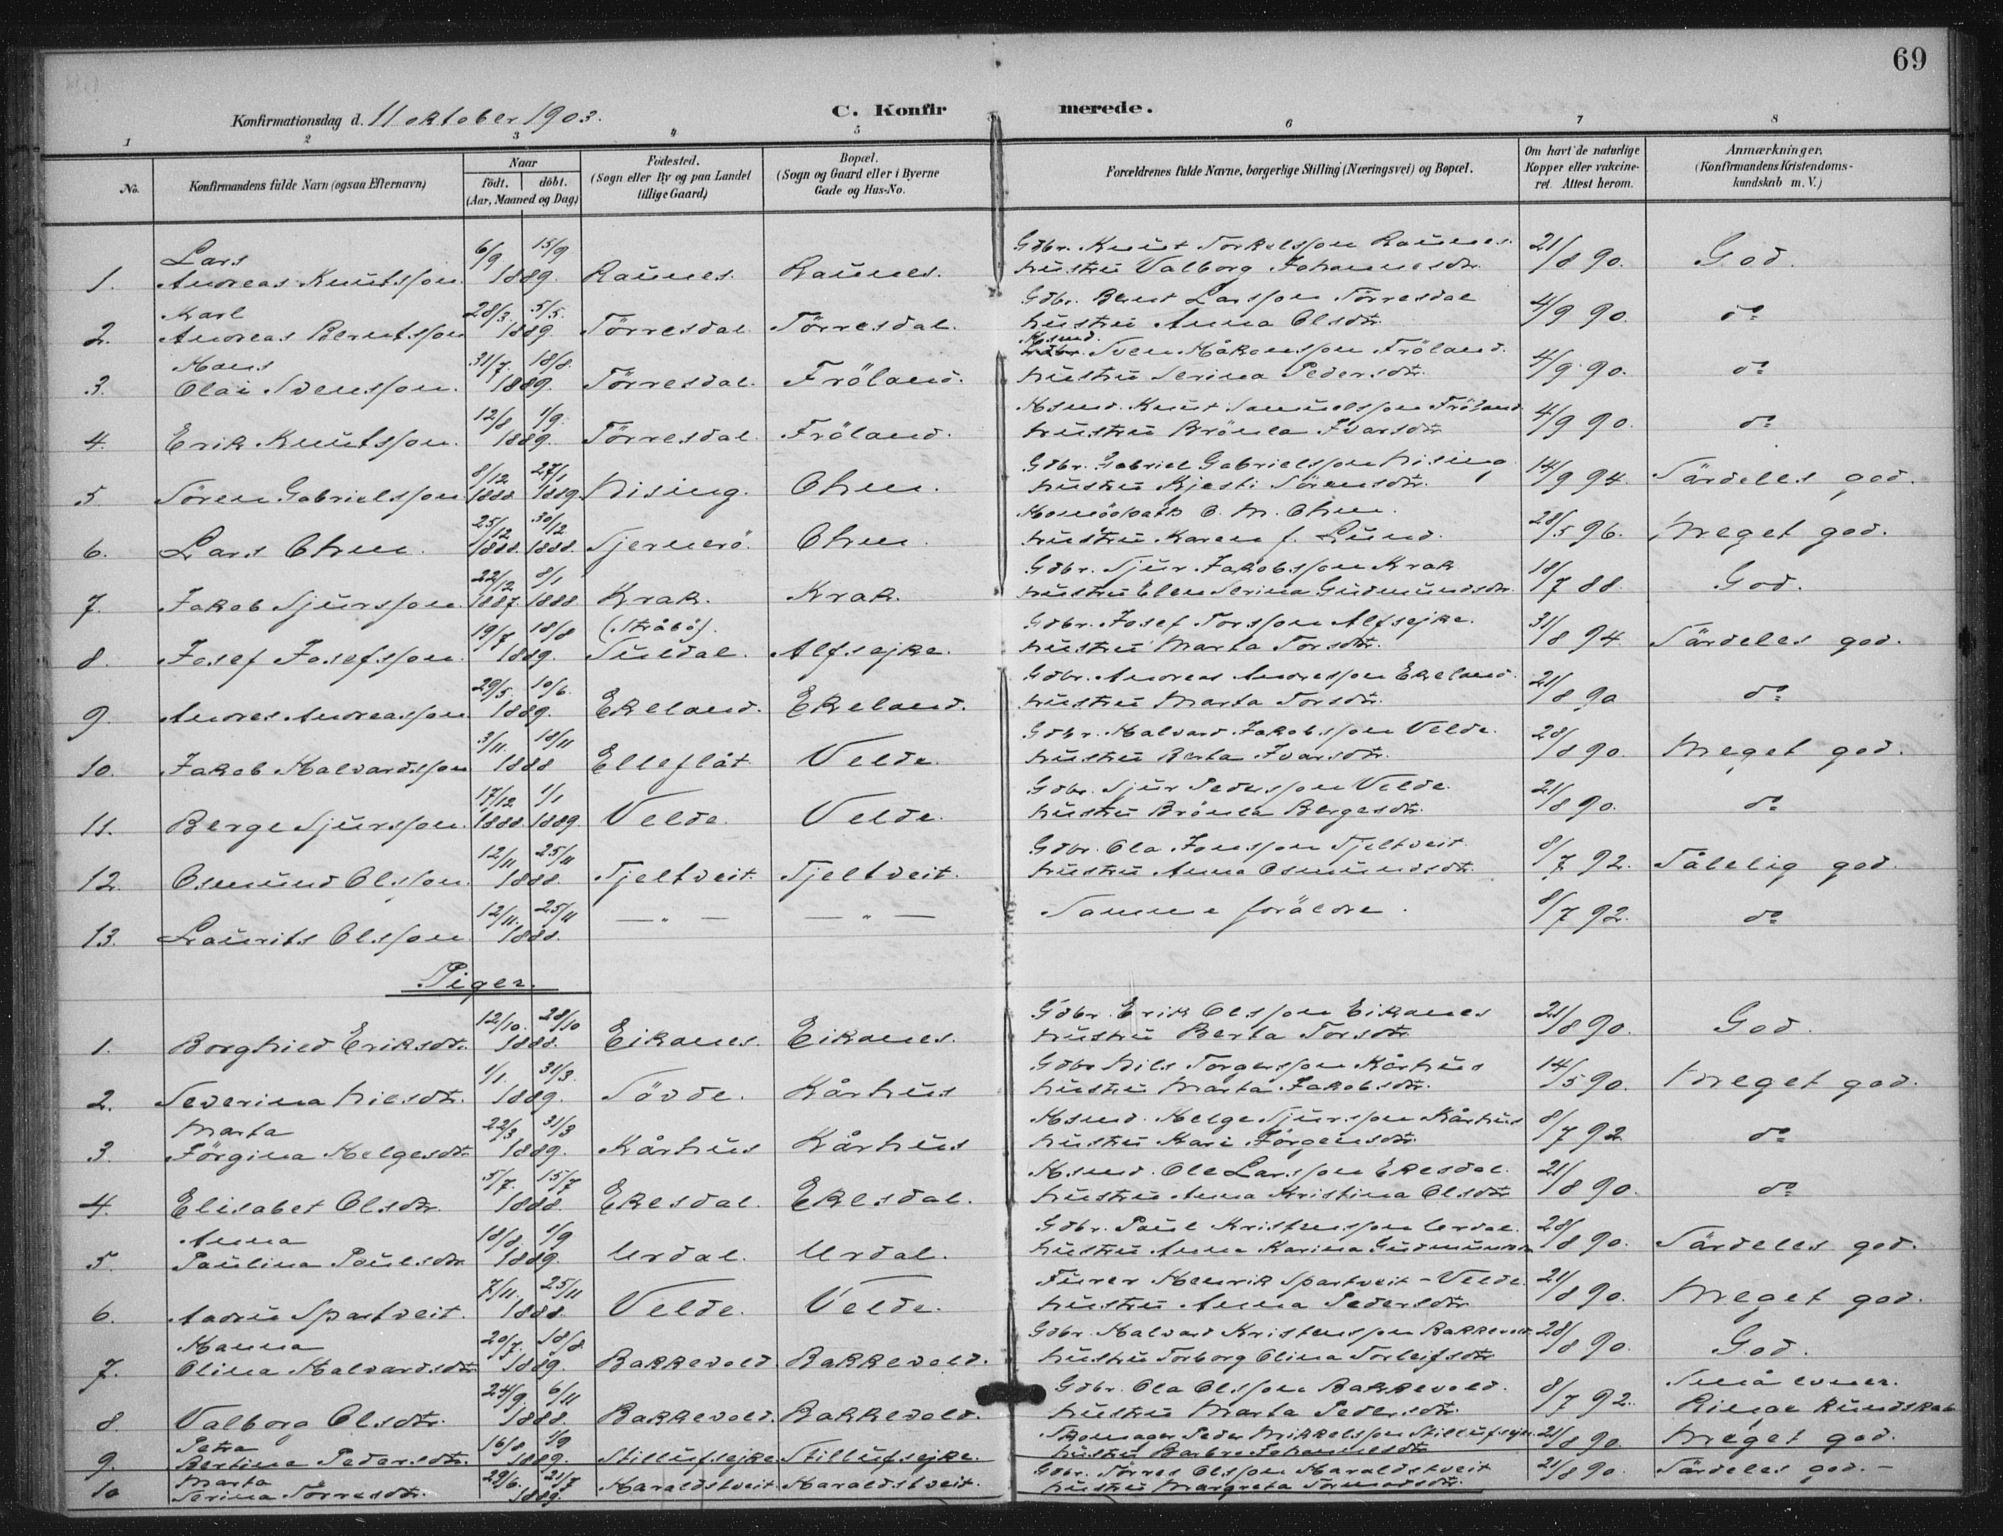 69
Konfirmationsdag d. 11 oktober 1903.
C. Konfirmerede.
1 2 3 4 5 6 7 8
No. Konfirmandens fulde Navn (ogsaa Efternavn) Naar født. døbt. (Aar, Maaned og Dag) Fødested. (Sogn eller By og paa Landet tillige Gaard) Bopæl. (Sogn og Gaard eller i Byerne Gade og Hus-No. Forældrenes fulde Navne, borgerlige Stilling (Næringsvei) og Bopæl. Om havt de naturlige Kopper eller vakcineret. Attest herom. Anmærkninger. (Konfirmandens Kristendomskundskab m. V.)
Lars 6/9 15/9 Gdbr. Knut Torkelsson Raunes. 21/8 90. God.
1. Andreas Knutsson 1889. Raunes. Raunes. hustru Valborg Johannesdtr.
Karl 28/3. 5/5. Gdbr. Bernt Larsson Törresdal 4/9 90. do
2. Andreas Berntsson 1889. Törresdal. Törresdal. hustru Anna Olsdtr.
Hans 31/7. 18/8 Hsmd. Sven Håkonsson Fröland. 4/9 90. do
3. Olai Svensson. 1889. Törresdal. Fröland. hustru Serina Pedersdtr.
12/8 1/9. Hsmd. Knut Samuelsson Fröland 4/9 90. do
4. Erik Knutsson. 1889. Törresdal. Fröland. hustru Brönla Ivarsdtr
8/12 27/1 Gdbr. Gabriel Gabrielsson Nising 14/9 94. Särdeles god.
5. Sören Gabrielsson 1888. 1889. Nising. Ohm. hustru Kjesti Sörensdtr.
25/12 30/12 C. M. Ohm. 28/5 96. Meget god.
6. Lars Ohm. 1888. 1888. Sjernerö. Ohm. hustru Karen f. Lund.
22/12 8/1 Gdbr. Sjur Jakobsson Krak 18/7 88. God.
7. Jakob Sjursson. 1887. 1888 Krak. Krak. hustru Elen Serina Gudmundsdtr.
19/7 18/8 (Stråbö). Gdbr. Josef Torsson Alfsejke. 31/8 94. Särdeles god.
8. Josef Josefsson. 1889. Suldal. Alfsejke. hustru Marta Torsdtr.
29/5. 10/6. Gdbr. Andreas Andresson Ekeland. 21/8 90 do
9. Andres Andreasson. 1889. Ekeland. Ekeland. hustru Marta Torsdtr.
3/11. 18/11 Gdbr. Halvard Jakobsson Velde. 28/8 90. Meget god.
10. Jakob Halvardsson 1888 Elleflåt Velde. hustru Berta Ivarsdtr.
17/12 1/1 Gdbr. Sjur Pedersson Velde. 21/8 90. do
11. Berge Sjursson. 1888. 1889. Velde. Velde. hustru Brönla Bergesdtr.
12/11 25/11 Gdbr. Ola Jonsson Tjeltveit. 8/7 92. Tålelig god.
12. Osmund Olsson. 1888. Tjeltveit. Tjeltveit. hustru Anna Osmundsdtr.
12/11. 25/11 — „ — — „ — Samme foräldre. 8/7 92. do
13. Laurits Olsson 1888.
Piger.
12/10. 28/10 Gdbr. Erik Olsson Eikanes 21/8 90. God.
1. Borghild Eriksdtr. 1888. Eikanes. Eikanes. hustru Berta Torsdtr
1/1. 31/3. Gdbr Nils Torgersson Kårhus 14/5 90. Meget god.
2. Severina Nilsdtr. 1889. Sövde. Kårhus hustru Marta Jakobsdtr.
Marta 22/3 31/3 Hsmd. Helge Sjursson Kårhus 8/7 92 do
3. Jörgina Helgesdtr 1889. Kårhus Kårhus hustru Kari Jörgensdtr.
5/7. 15/7 Hsmd. Ole Larsson Ekesdal. 21/8 90. do
4. Elisabet Olsdtr. 1888. Ekesdal. Ekesdal. hustru Anna Kristina Olsdtr
Anna 18/8. 1/9 Gdbr. Paul Kristensson Urdal. 28/8 90. Särdeles god.
5. Paulina Paulsdtr 1889. Urdal. Urdal. hustru Anna Karina
7/11. 25/11 Henrik Spartveit - Velde 21/8 90. Meget god.
6. Spartveit. 1888. Velde. Velde. hustru Anna Pedersdtr.
Hanna 20/7. 18/8. Gdbr. Halvard Kristensson Bakkevold 28/8 90. God.
7. Olina Halvardsdtr 1889. Bakkevold Bakkevold. hustru Torborg Olina Torleifsdtr
24/9 6/11 Gdbr. Ola Olsson Bakkevold. 8/7 92. Små evner.
8. Valborg Olsdtr. 1888. Bakkevold. Bakkevold. hustru Marta Pedersdtr. Ringe kundskab
Petra 16/8 1/9 Skomager Peder Mikkelsson Stillufsejke 21/8 90. Meget god.
9. Bertine Pedersdtr. 1889. Stillufsejke Stillufsejke. hustru Barbro Johannesdtr
Marta 29/6. 21/7 Gdbr. Törres Olsson Haraldstveit 21/8 90. Särdeles god. -
10 Serina Törresdtr. 1889. Haraldstveit. Haraldstveit. hustru Margreta Tormodsdtr.